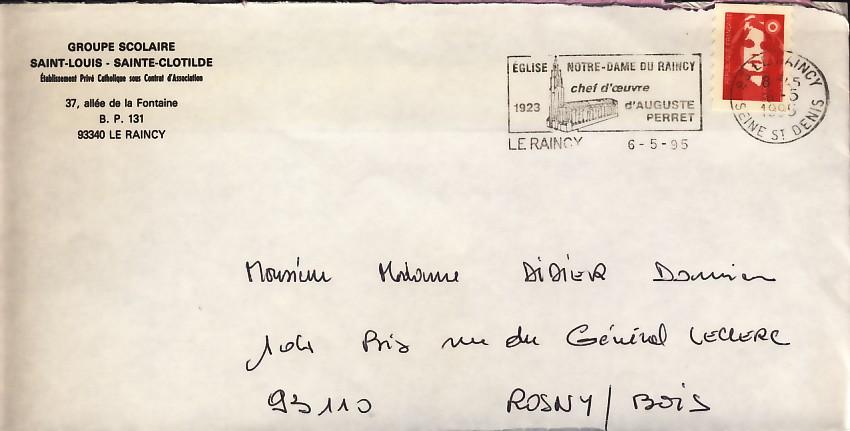 GROUPE SCOLAIRE
SAINT-LOUIS - SAINTE-CLOTILDE
Établissement Privé Catholique sous Contrat d'Association
37, allée de la Fontaine
B. P. 131
93340 LE RAINCY
ÉGLISE NOTRE-DAME DU RAINCY
chef d'œuvre
1923 d'AUGUSTE
PERRET
LE RAINCY 6-5-95
LE RAINCY
6-5
1995
SEINE ST DENIS
Monsieur Madame DIDIER Damien
104 Bis rue du Général LECLERC
93110 ROSNY/BOIS